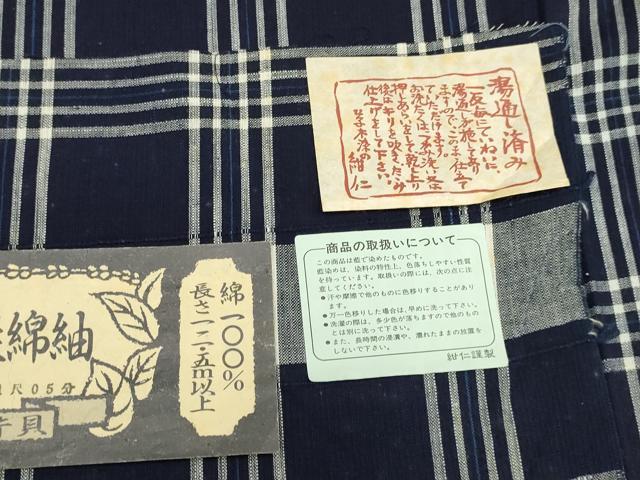 湯通し済み
一反毎にていねいに、
湯通しを施して有り
ますので、このまま仕立て
ていただけます。
お洗たくは、つまみ洗い又は
押しあらいをして、乾し上り
後はキリを吹き、たたみ
仕上げをして下さい。
紺仁
商品の取扱いについて
この商品は藍で染めたものです。
藍染めは、染料の特性上、色落ちしやすい性質
を持っています。取扱いの際には、次の点に注
意してください。
●汗や摩擦で他のものに色移りすることがあり
ます。
●万一色移りした場合は、早めに洗って下さい。
●洗濯の際は、多少色が落ちますので他のもの
とは別に洗って下さい。
●また、長時間の浸漬や、濡れたままの放置を
しないで下さい。
紺仁謹製
綿一〇〇%
長さ一二・五m以上
綿紬
尺05分